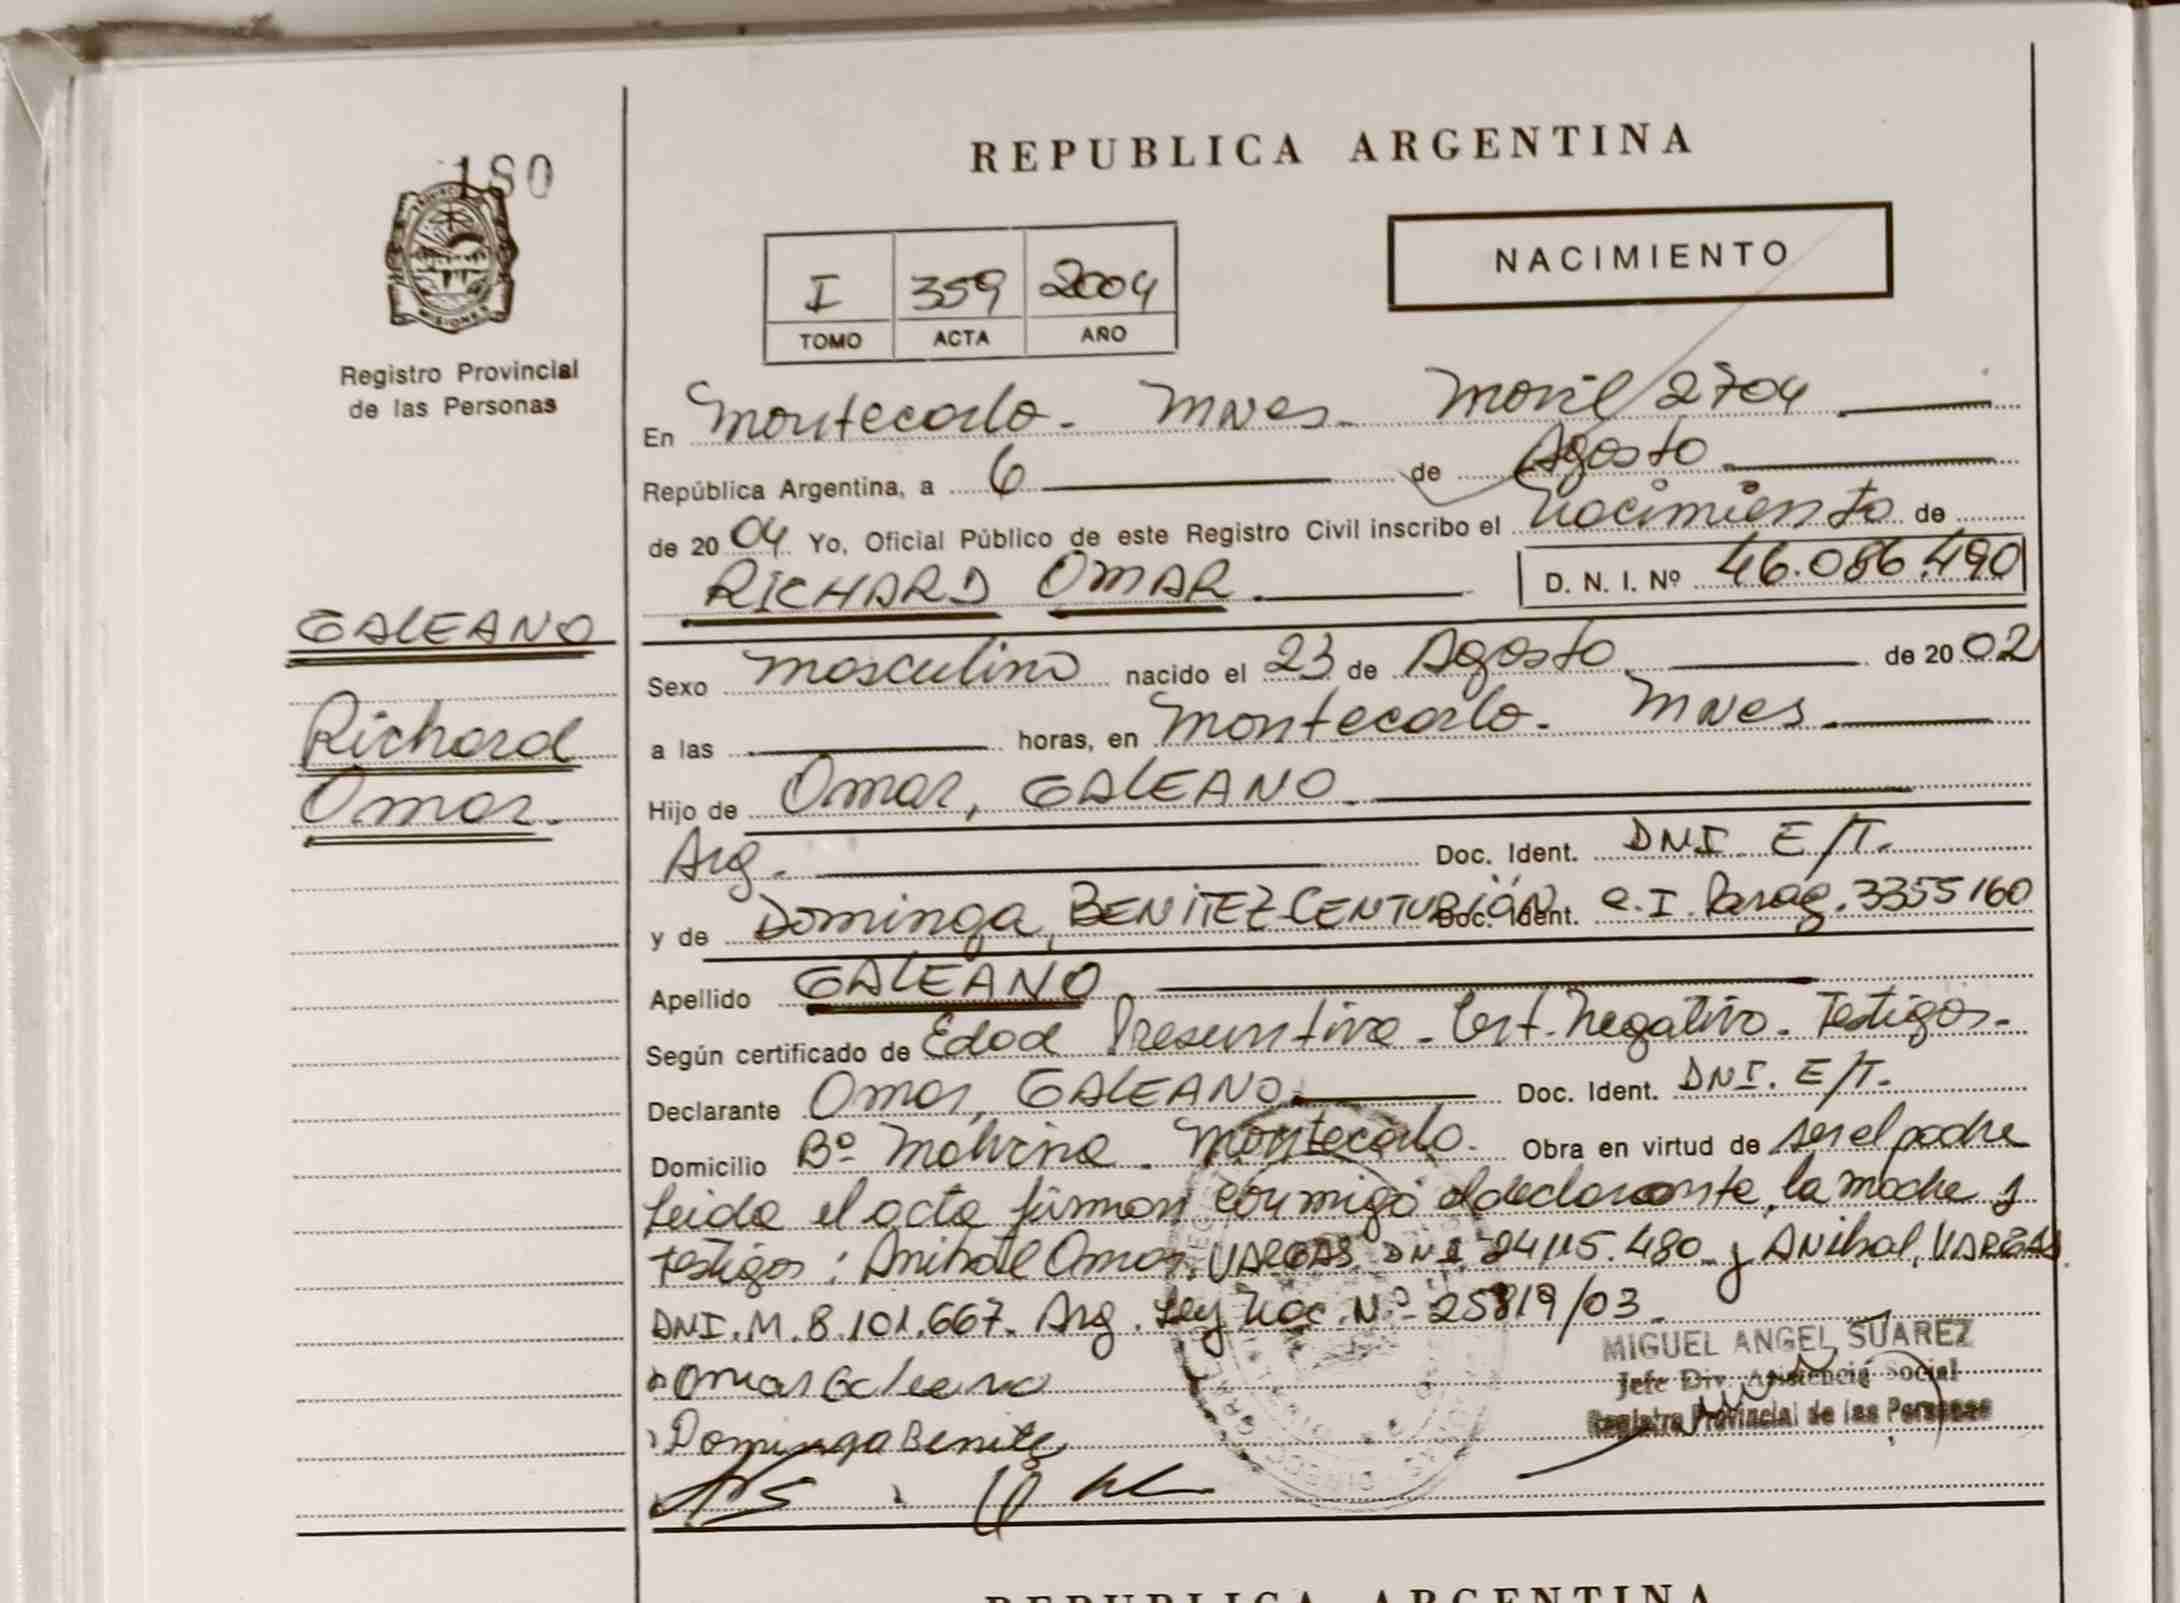 180
MISIONES
Registro Provincial
de las Personas
GALEANO
Richard
Omar.
REPUBLICA ARGENTINA
I 359 2004
TOMO ACTA AÑO
NACIMIENTO
En Montecarlo - Mnes - Movil 2704
República Argentina, a 6 de Agosto
de 2004 Yo, Oficial Público de este Registro Civil inscribo el nacimiento de
RICHARD OMAR. D. N. I. Nº 46.086.490
Sexo masculino nacido el 23 de Agosto de 2002
a las horas, en Montecarlo - Mnes.
Hijo de Omar, GALEANO.
Arg. Doc. Ident. DNI E/T.
y de Dominga, BENITEZ CENTURIÓN Doc. Ident. C.I. Parag. 3355160
Apellido GALEANO
Según certificado de Edad Presuntiva - Cert. Negativo - Testigos -
Declarante Omar, GALEANO. Doc. Ident. DNI. E/T.
Domicilio Bº Malvina - Montecarlo. Obra en virtud de ser el padre
Leida el acta firman conmigo el declarante, la madre y
testigos: Anibal Omar, VARGAS. DNI. 24115.480 y Anibal, VARGAS
DNI. M. 8.101.667. Arg. Ley Nac. Nº 25819/03.
Omar Galeano
Dominga Benitez
MIGUEL ANGEL SUAREZ
Jefe Div. Asistencia Social
Registro Provincial de las Personas
REPUBLICA ARGENTINA